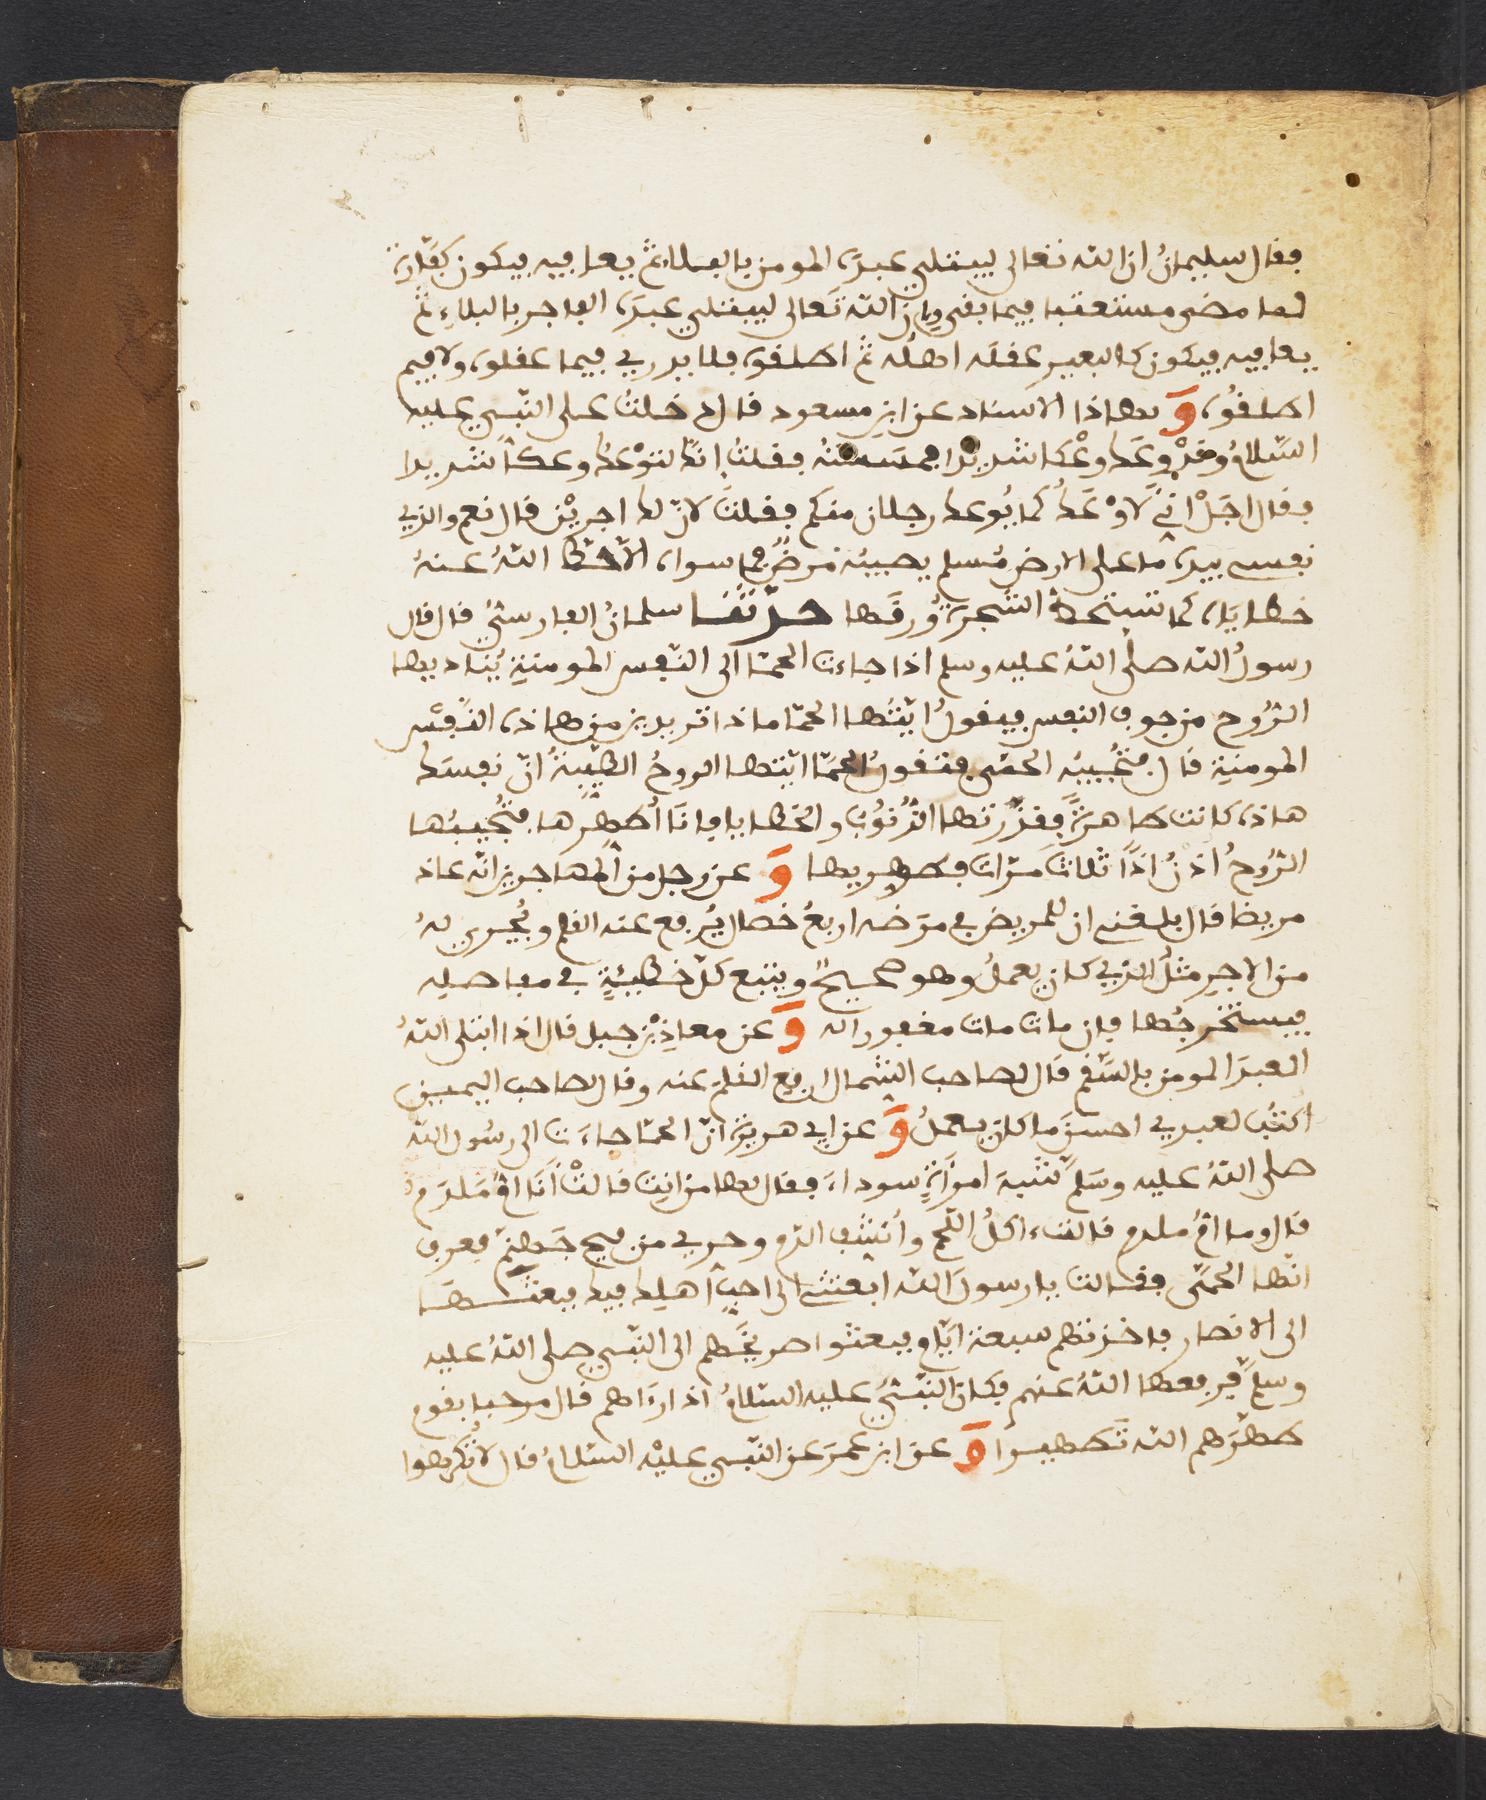 فقال سليمانُ ان الله تعالى ليبتلي عبدَه المومن بالبلاء ثم يعافيه فيكون كفّارة
لما مضى ومستعتبا فيما بقي وإن الله تعالى ليبتلي عبدَه الفاجر بالبلاءِ ثم
يعافيه فيكون كالبعير عقله اهلُه ثم اطلقوه فلا يدري فيما عقلوه ولا فيم
اطلقوُه وَ بهاذا الاسناد عن ابن مسعود قال دخلتُ على النّبي عليه
السّلامُ وهوْ وعَك وعْكا شديدا فمسَسْتُه فقلتُ انك لتوْعكُ وعكاً شديدا
فقال اجَلْ انّي لاوْعَكُ كما يُوعك رجلان منكم فقلتُ لانّ لك اجريْن قال نعم والذي
نفسي بيده ما على الارض مُسلم يصيبُه مرضٌ فما سواه الاّ حَطّ اللهُ عنهُ
خطاياه كما تحط الشجرةُ ورقَها حدّثنا سلمانُ الفارسيُّ قال قال
رسولُ الله صلى اللهُ عليه وسلم اذا جاءت الحمّا الى النّفس المومنةِ يُناديها
الرُّوح من جوف النفس فيقولُ ايّتُها الحمّا ماذا تريدين من هاذه النّفْس
المومنةِ قال فتُجيبُه الحمّى فتقول الحمّا ايّتها الروحُ الطيّبةُ انّ نفسَك
هاذه كانت طاهرةً فقذّرتها الذُّنُوب والخطايا وانَا أُطهّرها فتُجيبُها
الرُّوحُ ادنُ اذاً ثلاثَ مرّات فطهّريها وَ عن رجل من المهاجرين انّه عاد
مريضا قال بلغني ان للمريض في مرَضه اربعُ خصال يُرفع عنه القلم ويُجرى لهُ
من الاجر مثلُ الذي كان يعملُ وهو صحيحٌ ويتبع كلّ خطيئةٍ في مفاصله
فيستخرجُها فإن مات مات مغفورا له وَ عن معاذِ بْن جبل قال اذا ابتلى اللهُ
العبدَ المومن بالسّقم قال لصاحب الشمال ارفع القلم عنه وقال لصاحب اليمين
اكتُب لعبدي احسنَ ما كان يعملُ وَ عن ابي هريرة انّ الحمّا جاءَت الى رسُول الله
صلى اللهُ عليه وسلّم شبهَ امرأةٍ سوداءَ فقال لها من انتِ قالتْ أنَا امُّ مَلدَم
قال وما امُّ ملدم قالت ءاكلُ اللحم وأُنشّف الدّم وحرّي من فيح جَهنّم فعرف
انّها الحمّى فقالت يا رسولَ الله ابعثني الى احبّ أهلِك فيك فبعثَــها
الى الانصار فاخذتهم سبعة ايّام فبعثوا صريخَهم الى النّبي صلى اللهُ عليه
وسلم فرفعها اللهُ عنهم فكان النّبيُّ عليه السّلامُ اذا رءاهم قال مرحبا بقوم
طهّرَهم الله تَطهيرا وَ عن ابن عُمرَ عن النّبي عليْه السّلامُ قال لا تُكرِهوا